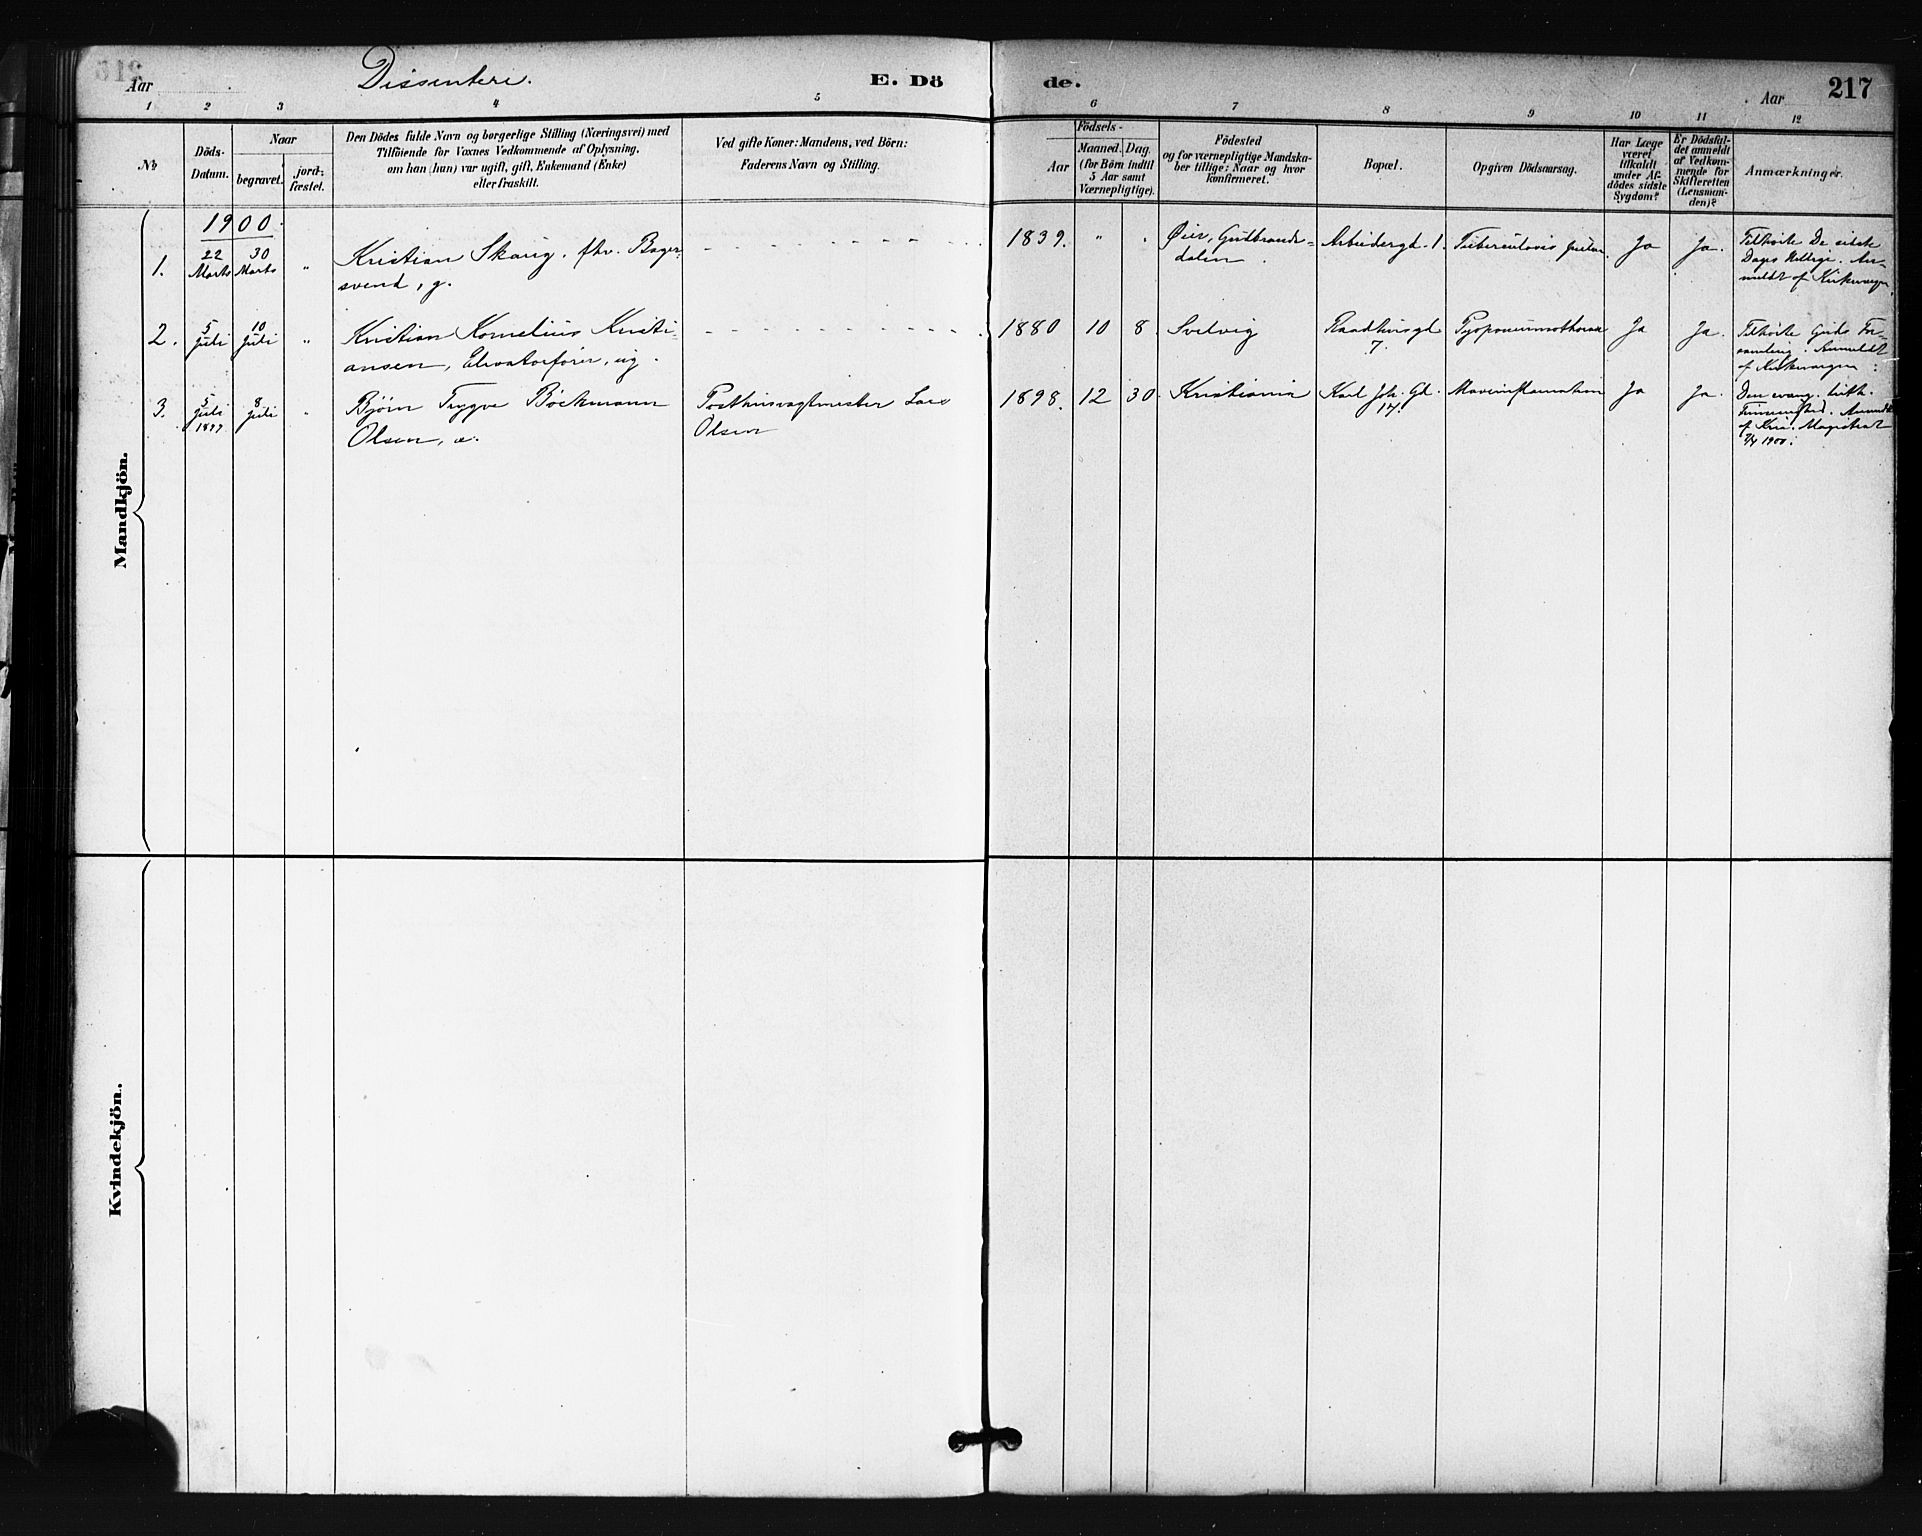 Aar
Dissentere.
E. Dö
de.
Aar
217
1 2 3 4 5 6 7 8 9 10 11 12
№
Döds-
Datum.
Naar
begravet.
jord-
fæstet.
Den Dödes fulde Navn og borgerlige Stilling (Næringsvei) med
Tilföiende for Voxnes Vedkommende af Oplysning,
om han (hun) var ugift, gift, Enkemand (Enke)
eller fraskilt.
Ved gifte Koner: Mandens, ved Börn:
Faderens Navn og Stilling.
Födsels-
Aar
Maaned. Dag.
(for Börn indtil
5 Aar samt
Værnepligtige).
Födested
og for værnepligtige Mandska-
ber tillige: Naar og hvor
konfirmeret.
Bopæl.
Opgiven Dödsaarsag.
Har Læge
været
tilkaldt
under Af-
dödes sidste
Sygdom?
Er Dödsfal-
det anmeldt
af Vedkom-
mende for
Skifteretten
(Lensman-
den)?
Anmærkninger.
Mandkjön.
1900.
1.
22
Marts
30
Marts
"
Kristian Skaug, fhv. Bager-
svend, g.
1839.
"
Øier, Gudbrands-
dalen.
Arbeidergd. 1.
Tuberculosis pulm.
Ja
Ja.
Tilhørte De sidste
Dages Hellige. An-
meldt af Kirkevergen.
2.
5
Juli
10
Juli
"
Kristian Kornelius Kristi-
ansen, Elevatorfører, ug.
1880 10 8.
Svelvig
Raadhusgd
7.
Pyopneumothorax
Ja
Ja.
Tilhørte Guds For-
samling. Anmeldt
af Kirkevergen.
3.
5
Juli
1899
8
Juli
"
Bjørn Trygve Böckmann
Olsen, u.
Posthusvagtmester Lars
Olsen
1898. 12 30.
Kristiania
Karl Joh. Gd.
17.
Maveinflamation
Ja
Ja.
Den evang. luth.
Frimenighed. Anmeldt
af Kra. Magistrat
1900.
Kvindekjön.